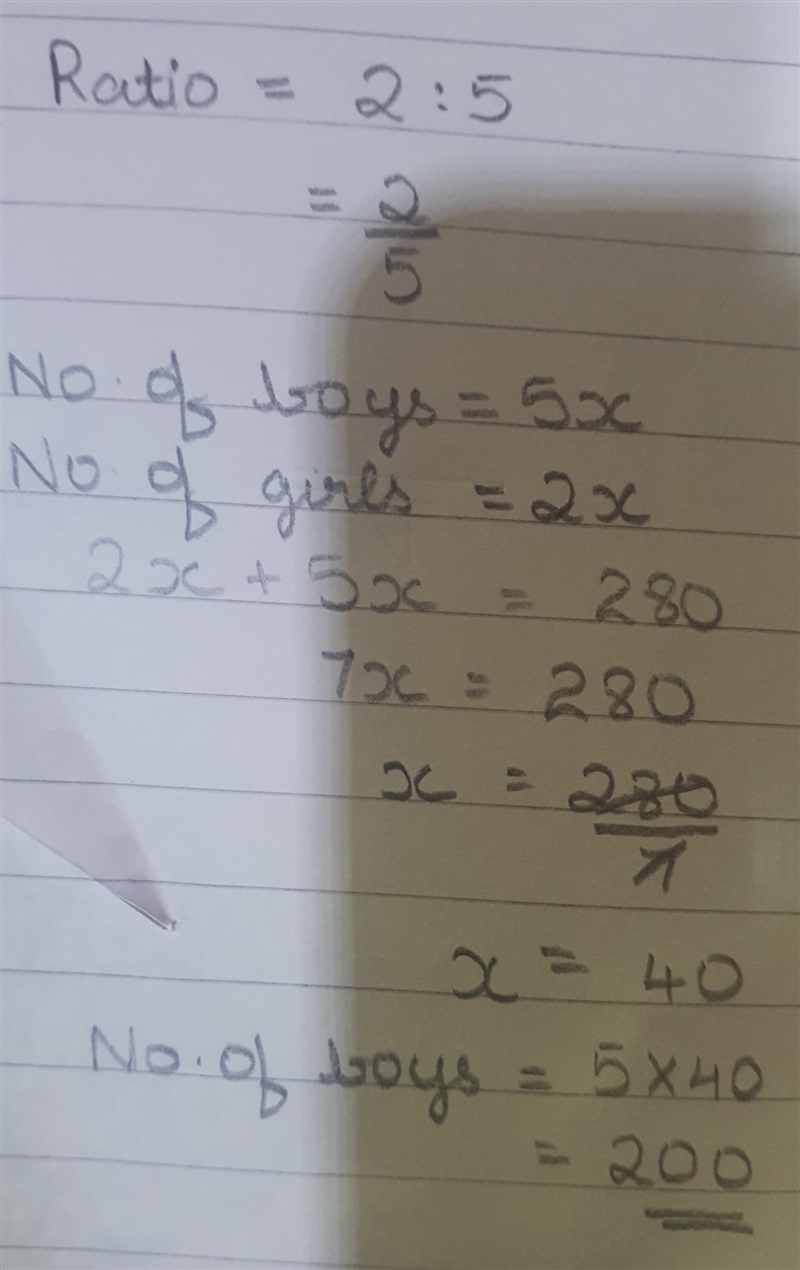 Ratio = 2 : 5
= 2/5
No. of boys = 5x
No. of girls = 2x
2x + 5x = 280
7x = 280
x = 280/7
x = 40
No. of boys = 5 x 40
= 200